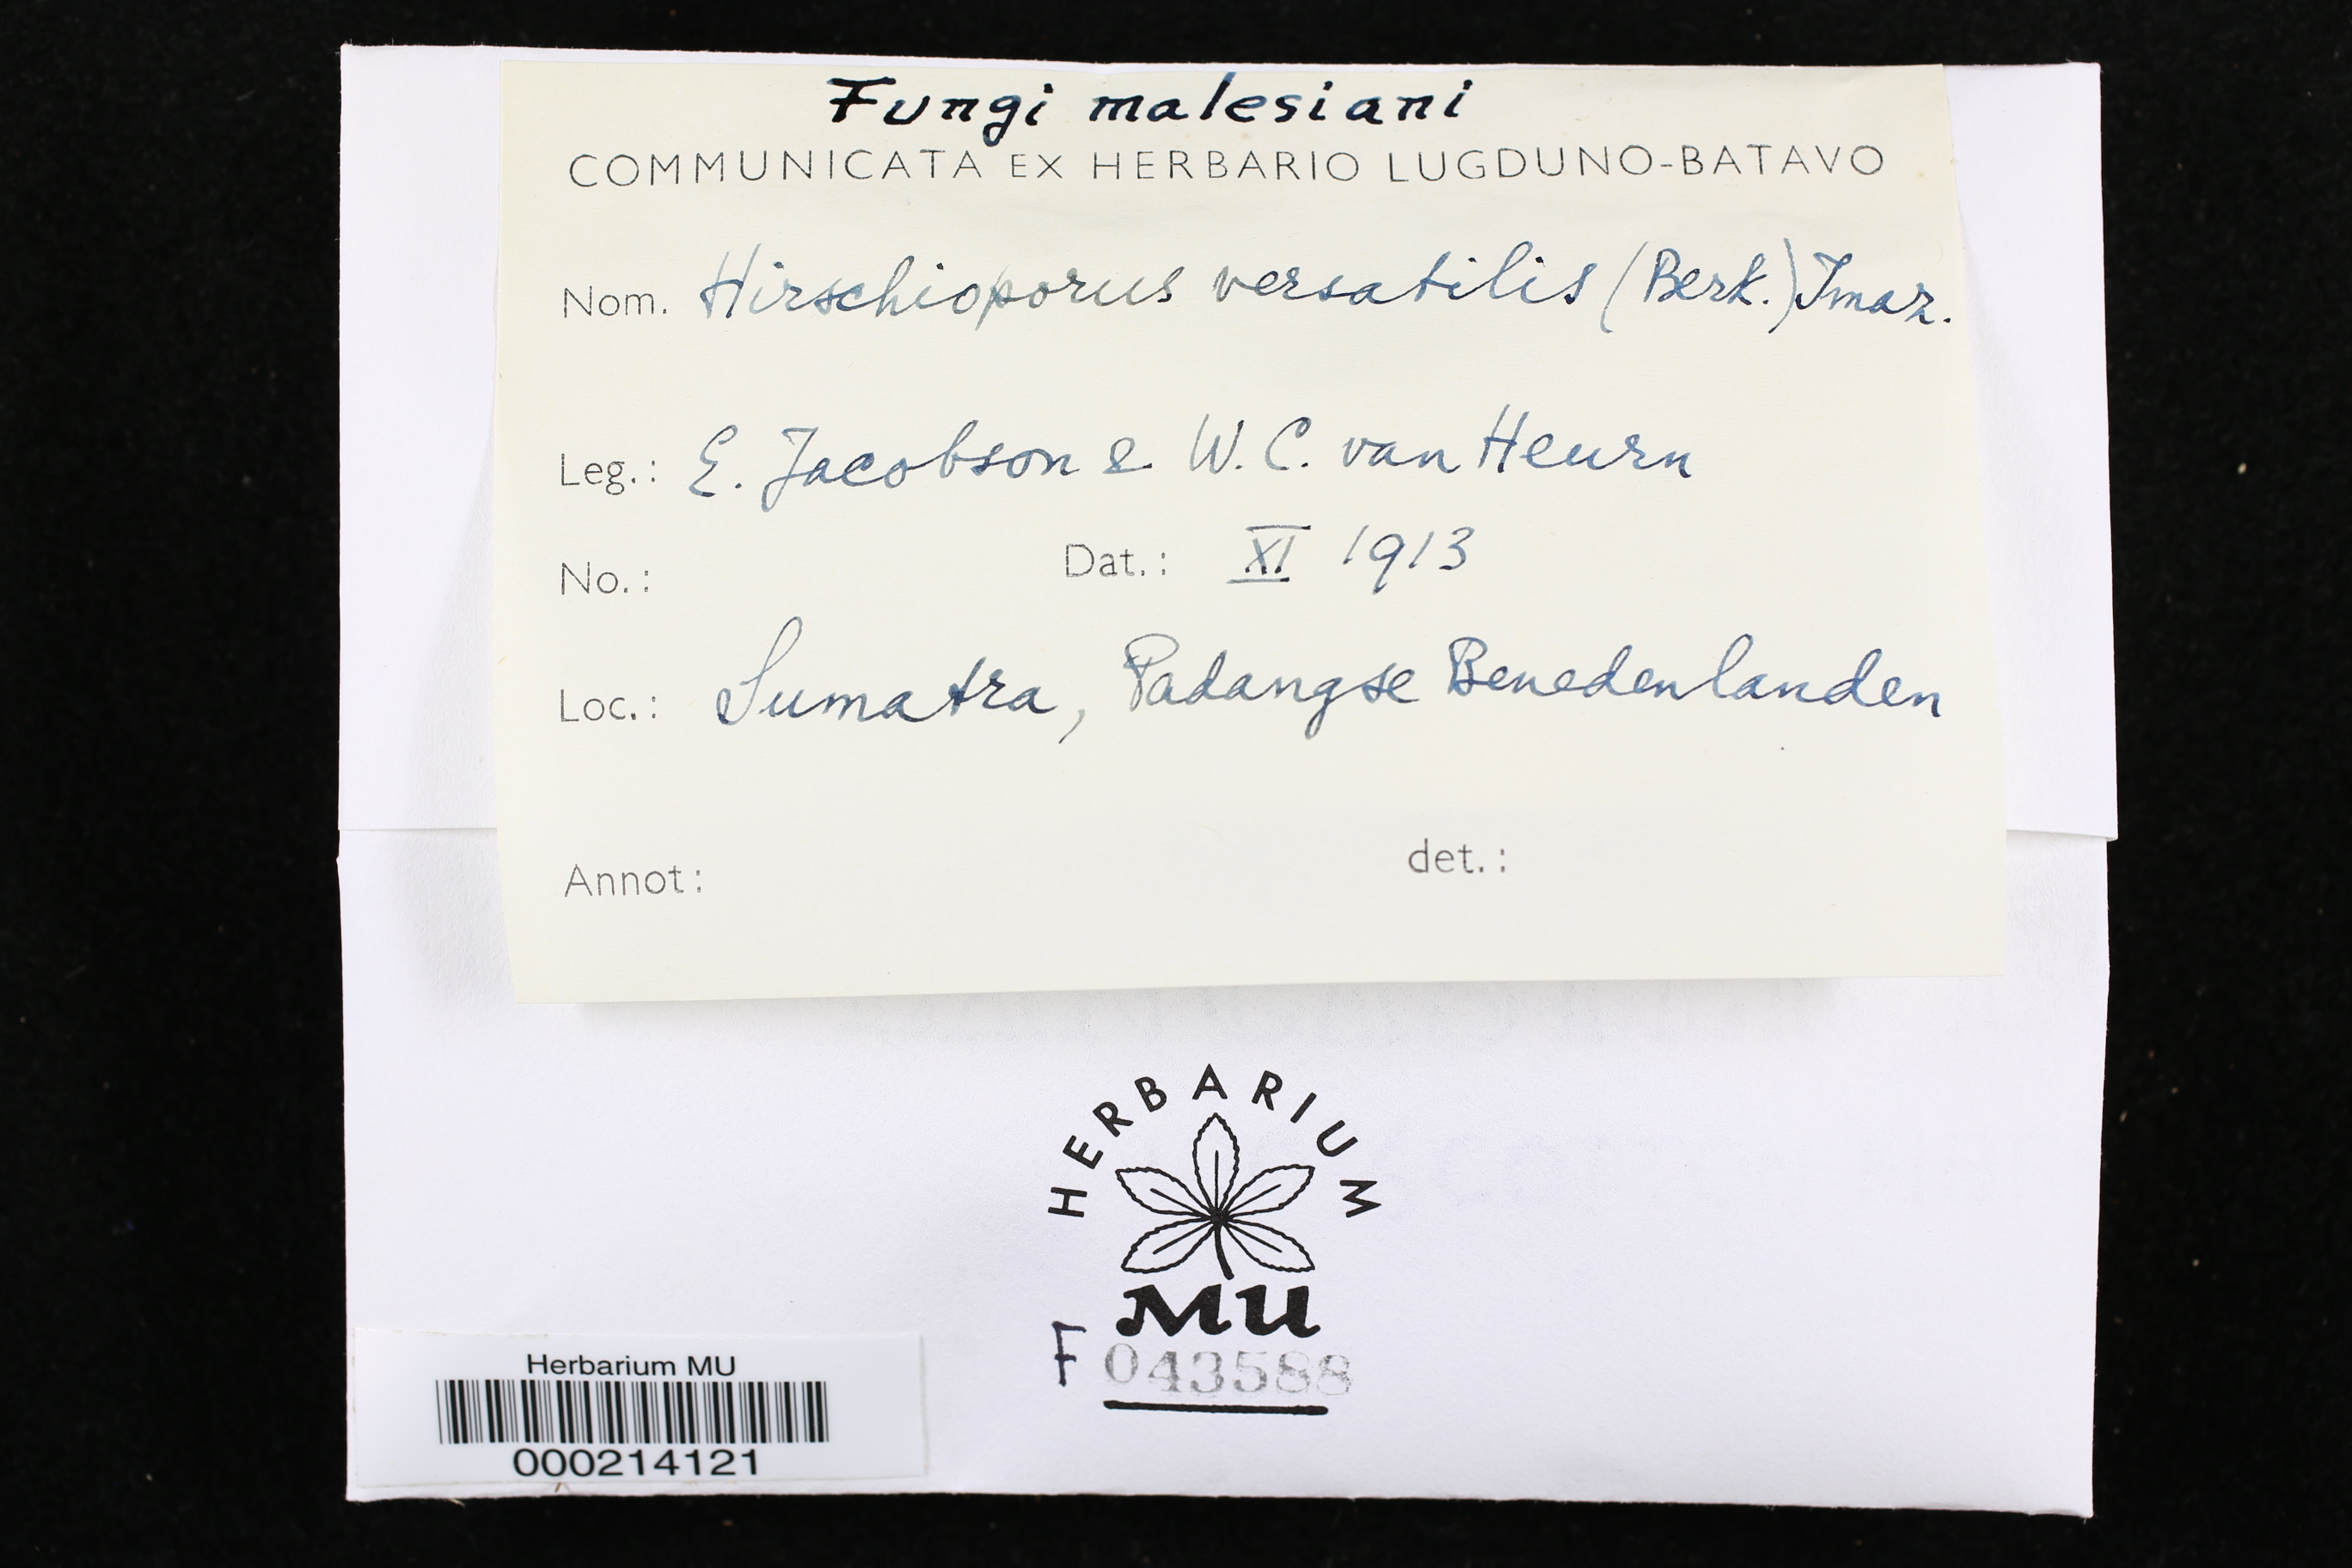 Fungi malesiani
COMMUNICATA EX HERBARIO LUGDUNO-BATAVO
Nom. Hirschioporus versatilis (Berk.) Imaz.
Leg.: E. Jacobson & W. C. van Heurn
No.: Dat.: XI 1913
Loc.: Sumatra, Padangse Benedenlanden
Annot: det.:
HERBARIUM
MU
F 043588
Herbarium MU
000214121